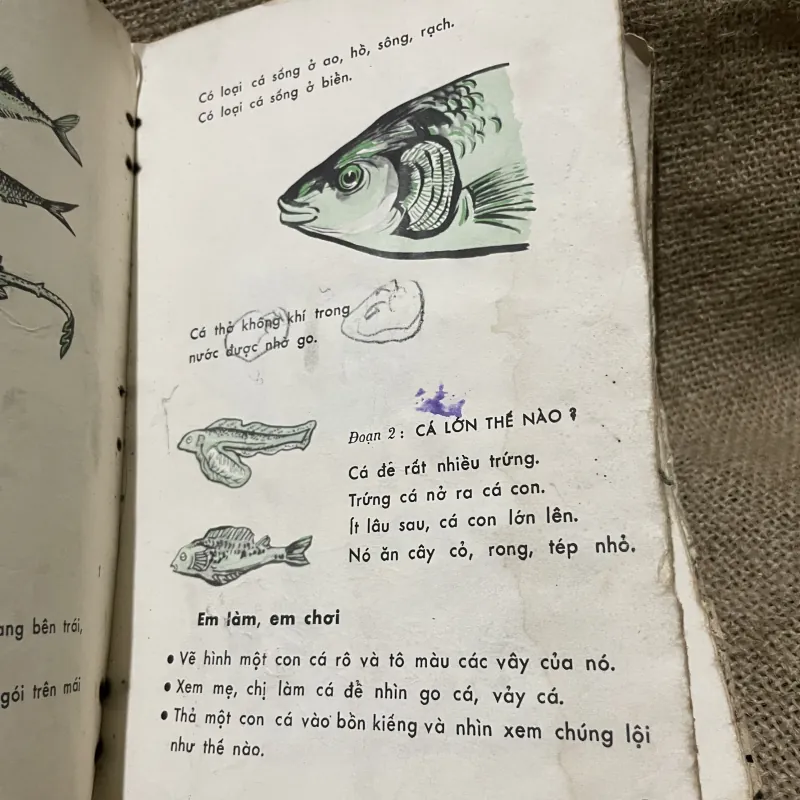 ang bên trái,
gói trên mái
Có loại cá sống ở ao, hồ, sông, rạch.
Có loại cá sống ở biển.
Cá thở không khí trong
nước được nhờ go.
Đoạn 2 : CÁ LỚN THẾ NÀO ?
Cá đẻ rất nhiều trứng.
Trứng cá nở ra cá con.
Ít lâu sau, cá con lớn lên.
Nó ăn cây cỏ, rong, tép nhỏ.
Em làm, em chơi
• Vẽ hình một con cá rô và tô màu các vây của nó.
• Xem mẹ, chị làm cá để nhìn go cá, vảy cá.
• Thả một con cá vào bồn kiếng và nhìn xem chúng lội
như thế nào.